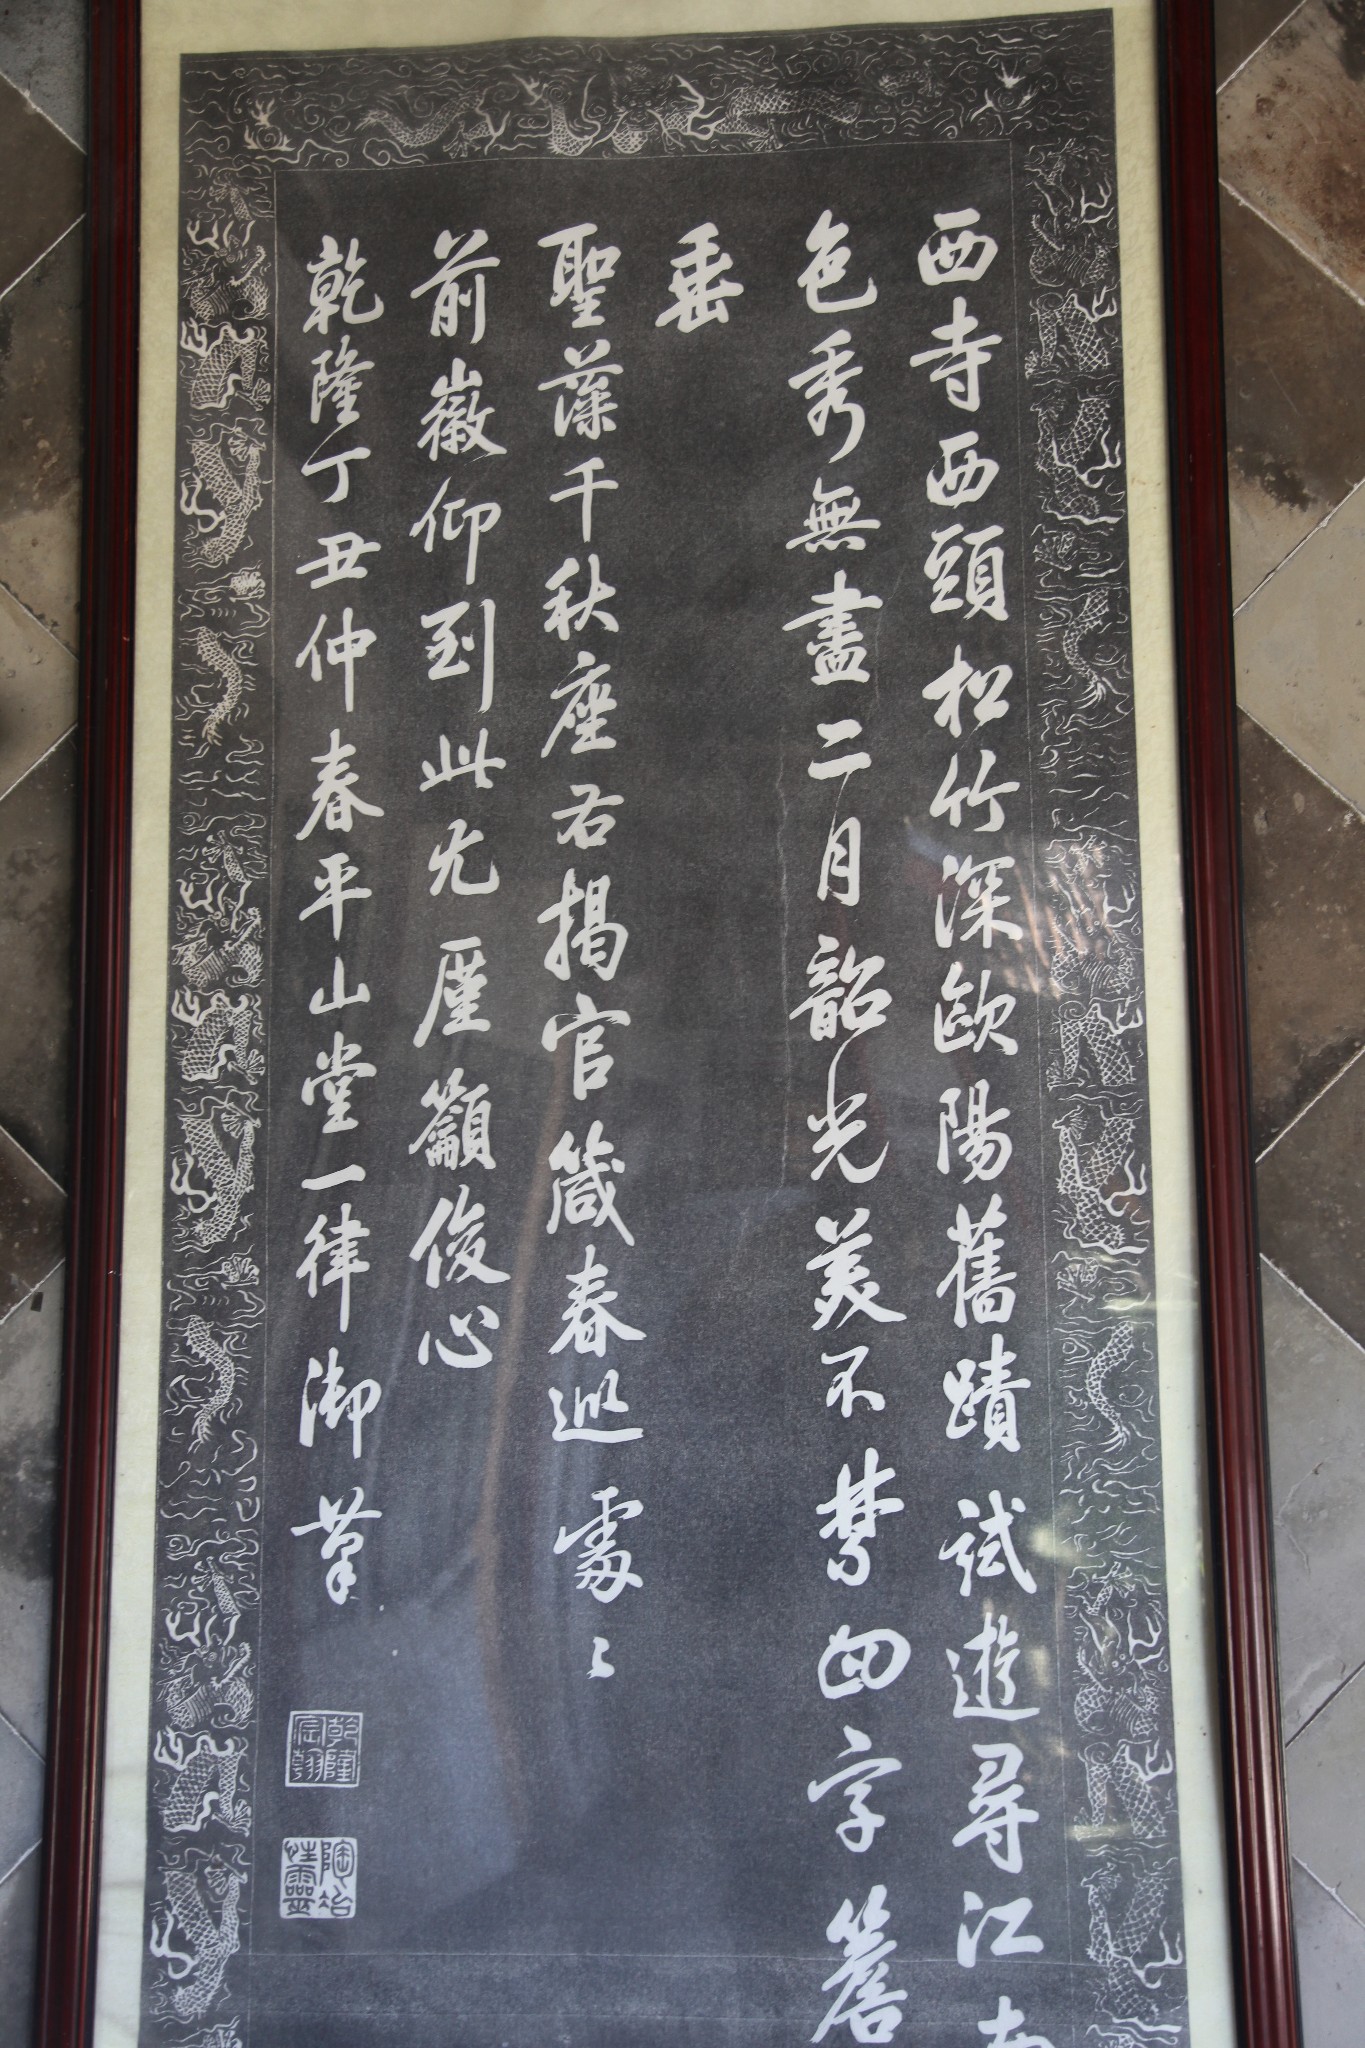 西寺西頭松竹深歐陽舊蹟試遊尋江南
色秀無盡二月韶光美不禁四字簷
垂
聖藻千秋座右揭官箴春巡處〻
前徽仰到此尤廑籲俊心
乾隆丁丑仲春平山堂一律御筆
乾隆宸翰
陶冶性靈